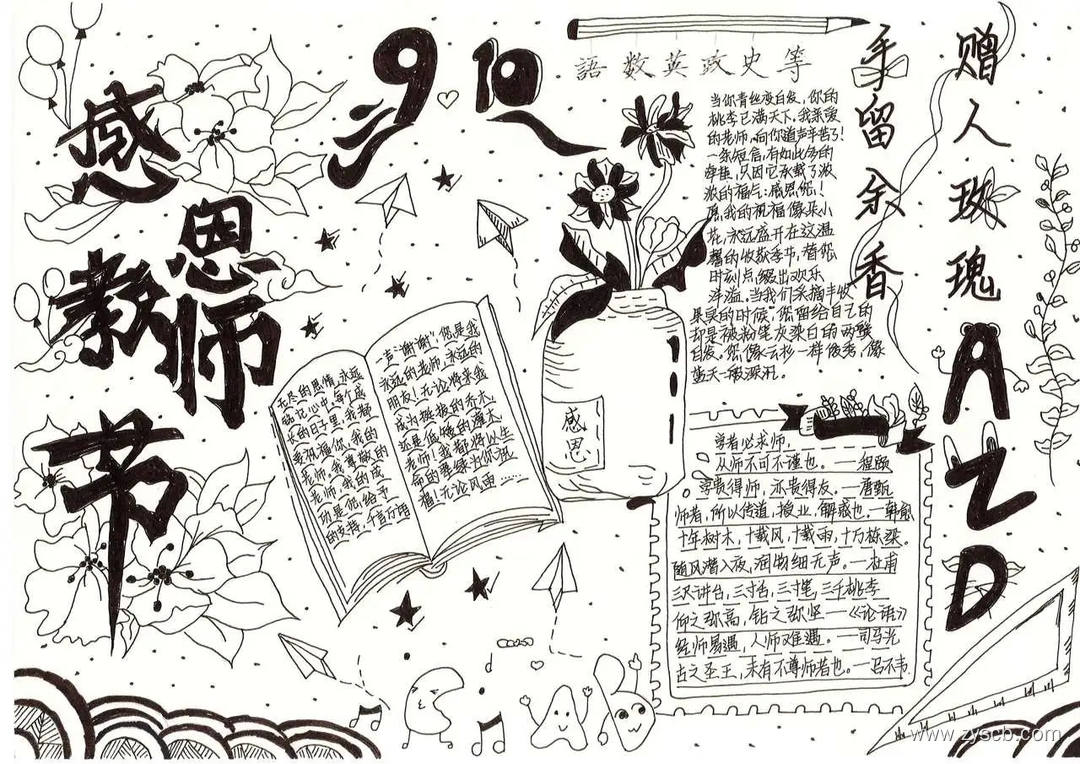 感恩教师节
9.10
語 数 英 政 史 等
手留余香
赠人玫瑰
当你青丝变白发，你的
桃李已满天下。我亲爱
的老师，向你道声辛苦了！
一条短信，有如此多的
牵挂，只因它承载了浓
浓的福气：感恩您！
愿我的祝福像朵小
花，永远盛开在这温
馨的收获季节，替您
时刻点缀出欢乐
洋溢。当我们采摘丰收
果实的时候，您留给自己的
却是被粉笔灰染白的两鬓
白发。您像云杉一样俊秀，像
蓝天一般深沉。
无尽的恩情，永远
铭记心中。每个成
长的日子里，我都
要祝福你，我的
老师。我尊敬的
老师，我的成
功是您给予
的支持，千言万语
一声"谢谢"。您是我
永远的老师，永远的
朋友！无论将来我
成为挺拔的乔木，
还是低矮的灌木，
老师！我都将以生
命的翠绿为你祝
福！无论风雨……
感恩
学者必求师，
从师不可不谨也。——程颐
学贵得师，亦贵得友。—唐甄
师者，所以传道，授业，解惑也。—韩愈
十年树木，十载风，十载雨，十万栋梁。
随风潜入夜，润物细无声。—杜甫
三尺讲台，三寸舌，三寸笔，三千桃李
仰之弥高，钻之弥坚—《论语》
经师易遇，人师难遇。—司马光
古之圣王，未有不尊师者也。—吕不韦
A
Z
D
www.zyscb.com